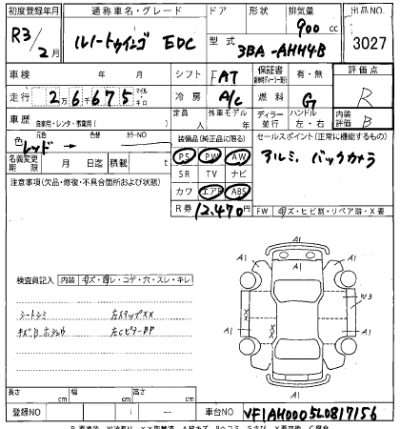 初度登録年月 通称車名・グレード ドア 形状 排気量 出品NO
R3/2月 ルノートゥインゴ EDC 900 cc 3027
型式 3BA-AHH4B
車検 年 月 シフト FAT 保証書 有・無 評価点
走行 26,675 冷房 A/C 燃料 G R
車歴 自家用・レンタ・事業用( ) 定員 人 外車モデル 年 ディラー 並行 ハンドル 左・右 内装評価 B
色 元色 レッド → 色替 カラーNO 装備品(純正品に限る) セールスポイント(正常に機能するもの)
PS PW AW アルミ、バックカメラ
名義変更期限 月 日迄 積載 t SR TV ナビ
注意事項(欠品・修復・不具合箇所及び状態) カワ エアB ABS
R券 12,470円 FW キズ・ヒビ割・リペア跡・X要
A1
A1 A1
検査員記入 内装 キズ・コゲ・穴・スレ・キレ
W3
シートシミ 右ステップXX
右Cピラー
A1 A1
A1
長さ cm 幅 cm 高さ cm
登録NO 車台NO VF1AH0005L0817156